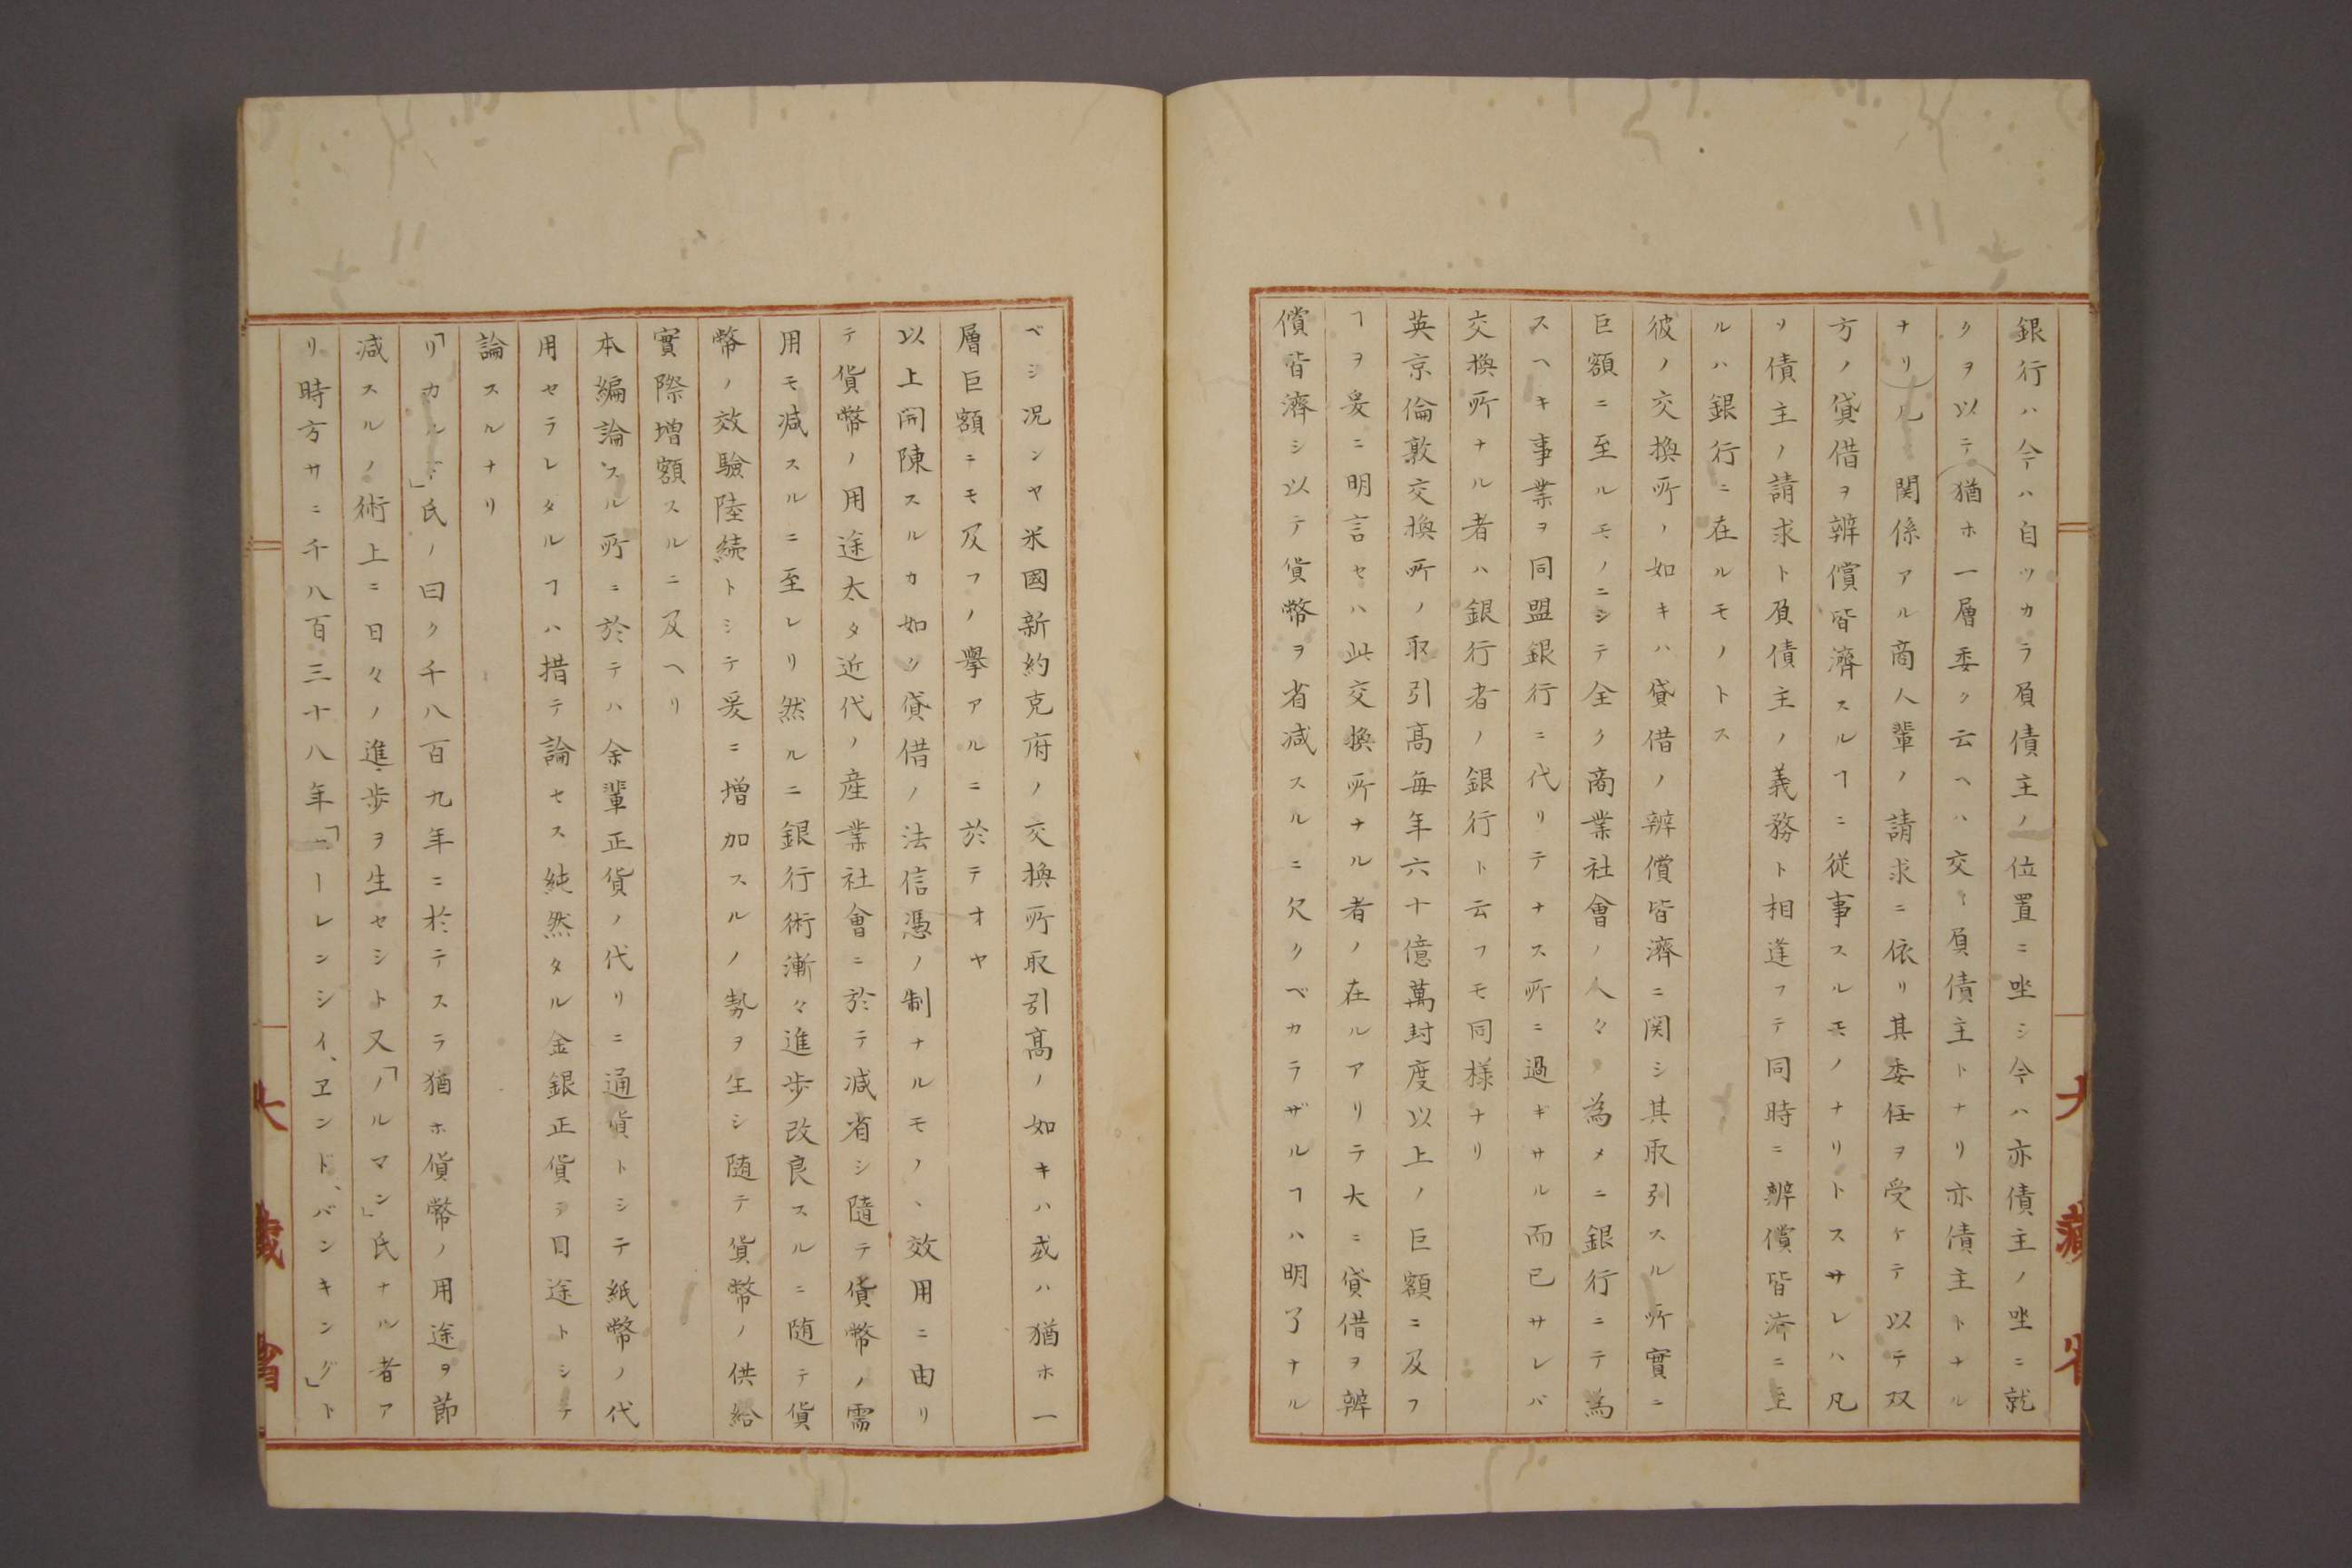 銀行ハ今ハ自ツカラ負債主ノ位置ニ坐シ今ハ亦債主ノ坐ニ就
クヲ以テ(猶ホ一層委ク云ヘハ交〻負債主トナリ亦債主トナル
ナリ)凡 関係アル商人輩ノ請求ニ依リ其委任ヲ受ケテ以テ双
方ノ貸借ヲ辨償皆濟スルヿニ従事スルモノナリトスサレハ凡
ソ債主ノ請求ト負債主ノ義務ト相逢フテ同時ニ辨償皆濟ニ至
ルハ銀行ニ在ルモノトス
彼ノ交換所ノ如キハ貸借ノ辨償皆濟ニ関シ其取引スル所實ニ
巨額ニ至ルモノニシテ全ク商業社會ノ人々ノ為メニ銀行ニテ為
スヘキ事業ヲ同盟銀行ニ代リテナス所ニ過ギサル而已サレバ
交換所ナル者ハ銀行者ノ銀行ト云フモ同様ナリ
英京倫敦交換所ノ取引高毎年六十億萬封度以上ノ巨額ニ及フ
ヿヲ爰ニ明言セハ此交換所ナル者ノ在ルアリテ大ニ貸借ヲ辨
償皆濟シ以テ貨幣ヲ省减スルニ欠クベカラザルヿハ明了ナル
ベシ况ンヤ米國新約克府ノ交換所取引高ノ如キハ或ハ猶ホ一
層巨額ニモ及フノ擧アルニ於テオヤ
以上開陳スルカ如ク貸借ノ法信憑ノ制ナルモノヽ效用ニ由リ
テ貨幣ノ用途太タ近代ノ産業社會ニ於テ减省シ隨テ貨幣ノ需
用モ减スルニ至レリ然ルニ銀行術漸々進歩改良スルニ随テ貨
幣ノ效驗陸続トシテ爰ニ増加スルノ勢ヲ生シ随テ貨幣ノ供給
實際増額スルニ及ヘリ
本編論スル所ニ於テハ余輩正貨ノ代リニ通貨トシテ紙幣ノ代
用セラレタルヿハ措テ論セス純然タル金銀正貨ヲ目途トシテ
論スルナリ
「リカルド」氏ノ曰ク千八百九年ニ於テスラ猶ホ貨幣ノ用途ヲ節
减スルノ術上ニ日々ノ進歩ヲ生セシト又「ノルマン」氏ナル者ア
リ時方サニ千八百三十八年「ーレンシイ、エンド、バンキング」ト
大藏省
大藏省